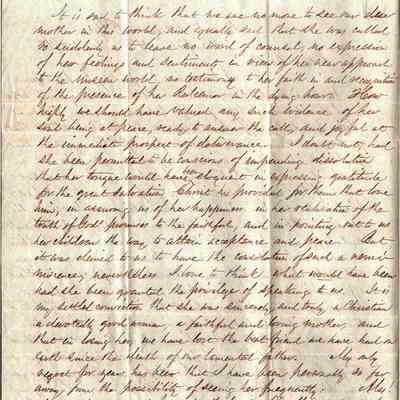 It is sad to think that we are no more to see our dear
mother in this world, and equally sad that she was called
so suddenly as to leave no word of counsel, no expression
of her feelings and sentiment in view of her near approach
to the unseen world, no testimony to her faith in and recognition
of the presence of her Redeemer in the dying hour. How
highly we should have valued any such evidence of her
soul being at peace, ready to answer the call, and joyful at
the immediate prospect of deliverance. I doubt not, had
she been permitted to be conscious of impending dissolution
that her tongue would have been eloquent in expressing gratitude
for the great salvation Christ has provided for them that love
him, in assuring us of her happiness in her realization of the
truth of God's promises to the faithful, and in pointing out to us
her children the way to attain acceptance and peace. But
it was denied to us to have the consolation of such a
nevertheless I love to think what would have been
had she been granted the privilege of speaking to us. It is
my settled conviction that she was sincerely and truly a Christian
a devotedly good woman, a faithful and loving mother, and
that in losing her, we have lost the best friend we have had on
earth since the death of our lamented father. My only
regret for years has been that I have been personally so far
away from the possibility of seeing her frequently. Alas!